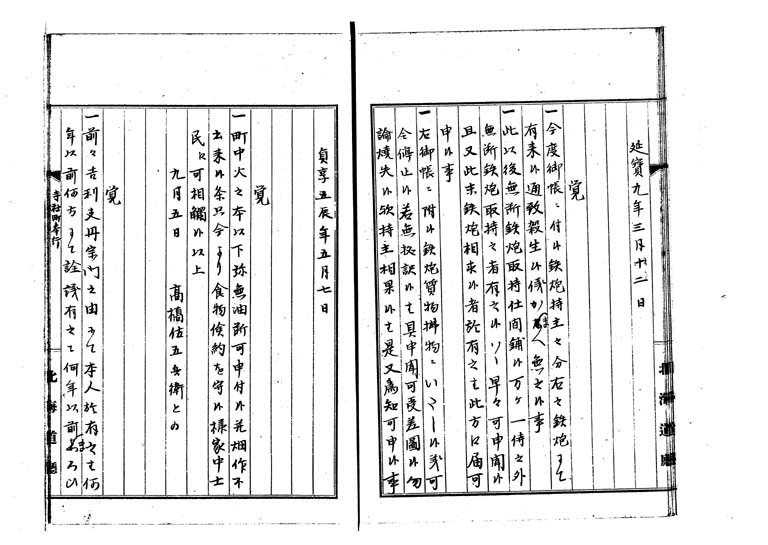 延寶九年三月十二日
覚
一今度御帳ニ付候鉄炮持主之分右之鉄炮ニて
有来候通致殺生候儀かまへ無之候事
一此以後無断鉄炮取持仕間鋪候万ヶ一侍之外
無断鉄炮取持之者有之候ハヽ早々可申聞候
且又此末鉄炮相求候者於有之ハ此方江届可
申候事
一右御帳ニ附候鉄炮質物拂物ニいたし候義可
令停止候若無拠訳候ハヽ具申聞可受差圖候勿
論焼失候欤持主相果候ハヽ是又為知可申候事
貞享五辰年五月七日
覚
一町中火之本以下弥無油断可申付候花畑作不
出来候条只今より食物倹約を守候様家中士
民江可相觸候以上
九月五日 高橋佐五兵衛との
覚
一前々吉利支丹宗門之由ニて本人於有之ハ何
年以前何方ニて詮議有之て何年以前
寺社町奉行
北海道廳
北海道廳